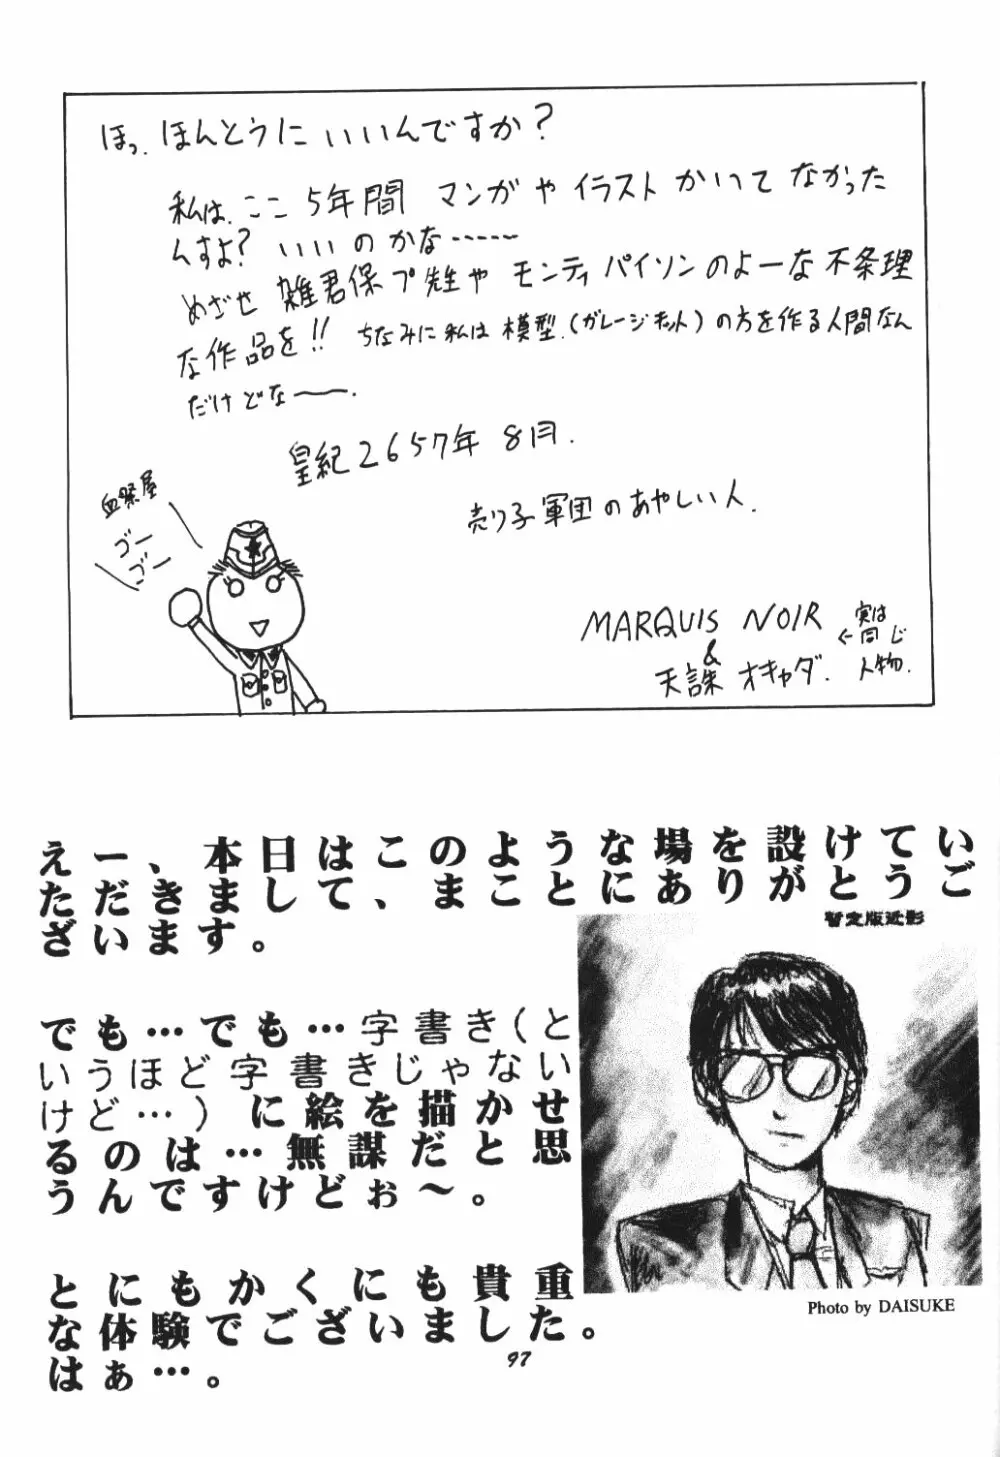 ほっ、ほんとうにいいんですか?
私は、ここ5年間 マンガや イラスト かいて なかった
んすよ? いいのかな……
めざせ 雑君保プ先生や モンティパイソンのよーな不条理
な作品を!! ちなみに私は模型(ガレージキット)の方を作る人間なん
だけどな――.
皇紀2657年 8月.
売り子軍団のあやしい人.
血祭屋
ゴー
ゴー
MARQUIS NOIR
&
天誅 オキャダ.
←実は
同じ
人物.
えー、本日はこのような場を設けてい
ただきまして、まことにありがとうご
ざいます。
暫定版近影
でも…でも…字書き(と
いうほど字書きじゃない
けど…)に絵を描かせ
るのは…無謀だと思
うんですけどぉ~。
とにもかくにも貴重
な体験でございました。
はぁ…。
Photo by DAISUKE
97